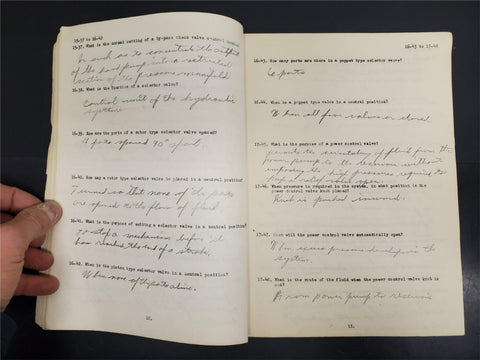 15-37 to 16-42
15-37. What is the normal setting of a by-pass check valve
In such as to concentrate the output
of the hand pump into a restricted
section of the pressure manifold
16-38. What is the function of a selector valve?
Control unit of the hydraulic
system
16-39. How are the ports of a rotor type selector valve spaced?
4 ports spaced 90° apart.
16-40. How may a rotor type selector valve be placed in a neutral position?
Turned so that none of the ports
are opened to the flow of fluid.
16-41. What is the purpose of setting a selector valve in a neutral position?
To stop a mechanism before it
has reached the end of a stroke.
16-42. When is the piston type selector valve in a neutral position?
When none of the ports aline.
12.
16-43 to 17-48
16-43. How many ports are there in a poppet type selector valve?
6 ports
16-44. When is a poppet type valve in a neutral position?
When all four valves are closed
17-45. What is the purpose of a power control valve?
permits the circulation of fluid from the
power pump to the reservoir without
17-46. When pressure is required in the system, in what position is the
power control valve knob placed?
Knob is pushed inward.
17-47. When will the power control valve automatically open?
When excess pressure develops in the
system.
17-48. What is the route of the fluid when the power control valve knob is
out?
From power pump to reservoir
13.